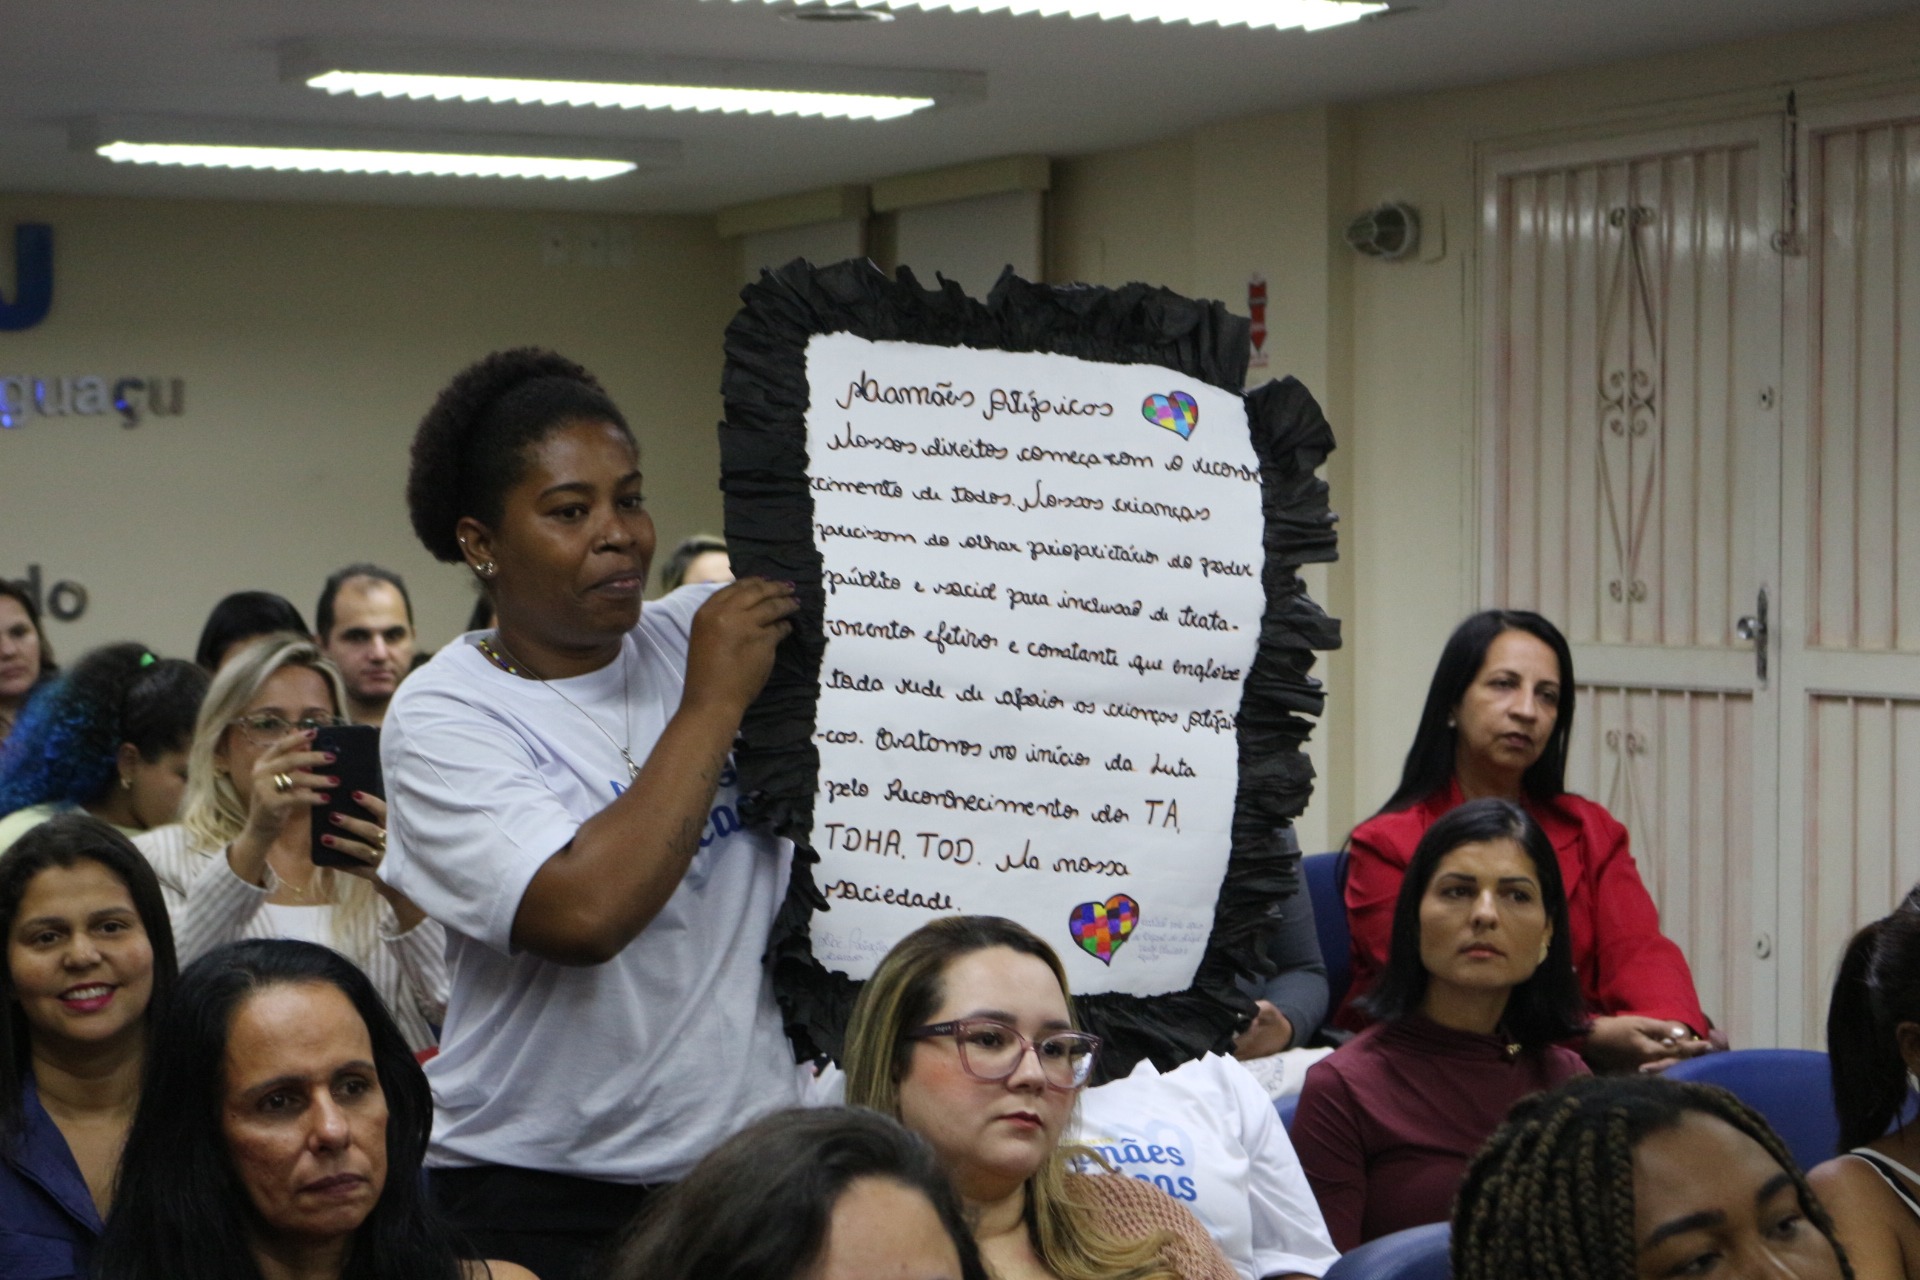 guaçu
do
Mamães Atípicos
Nossos direitos começa com o reconhe
cimento de todos. Nossos crianças
precisam do olhar proprietário do poder
público e social para inclusão de trata-
mento efetivo e constante que englobe
toda rede de apoio as crianças atípi
-cos. no início da Luta
pelo Reconhecimento do TA,
TDHA, TOD. Na nossa
sociedade.
mães
cas